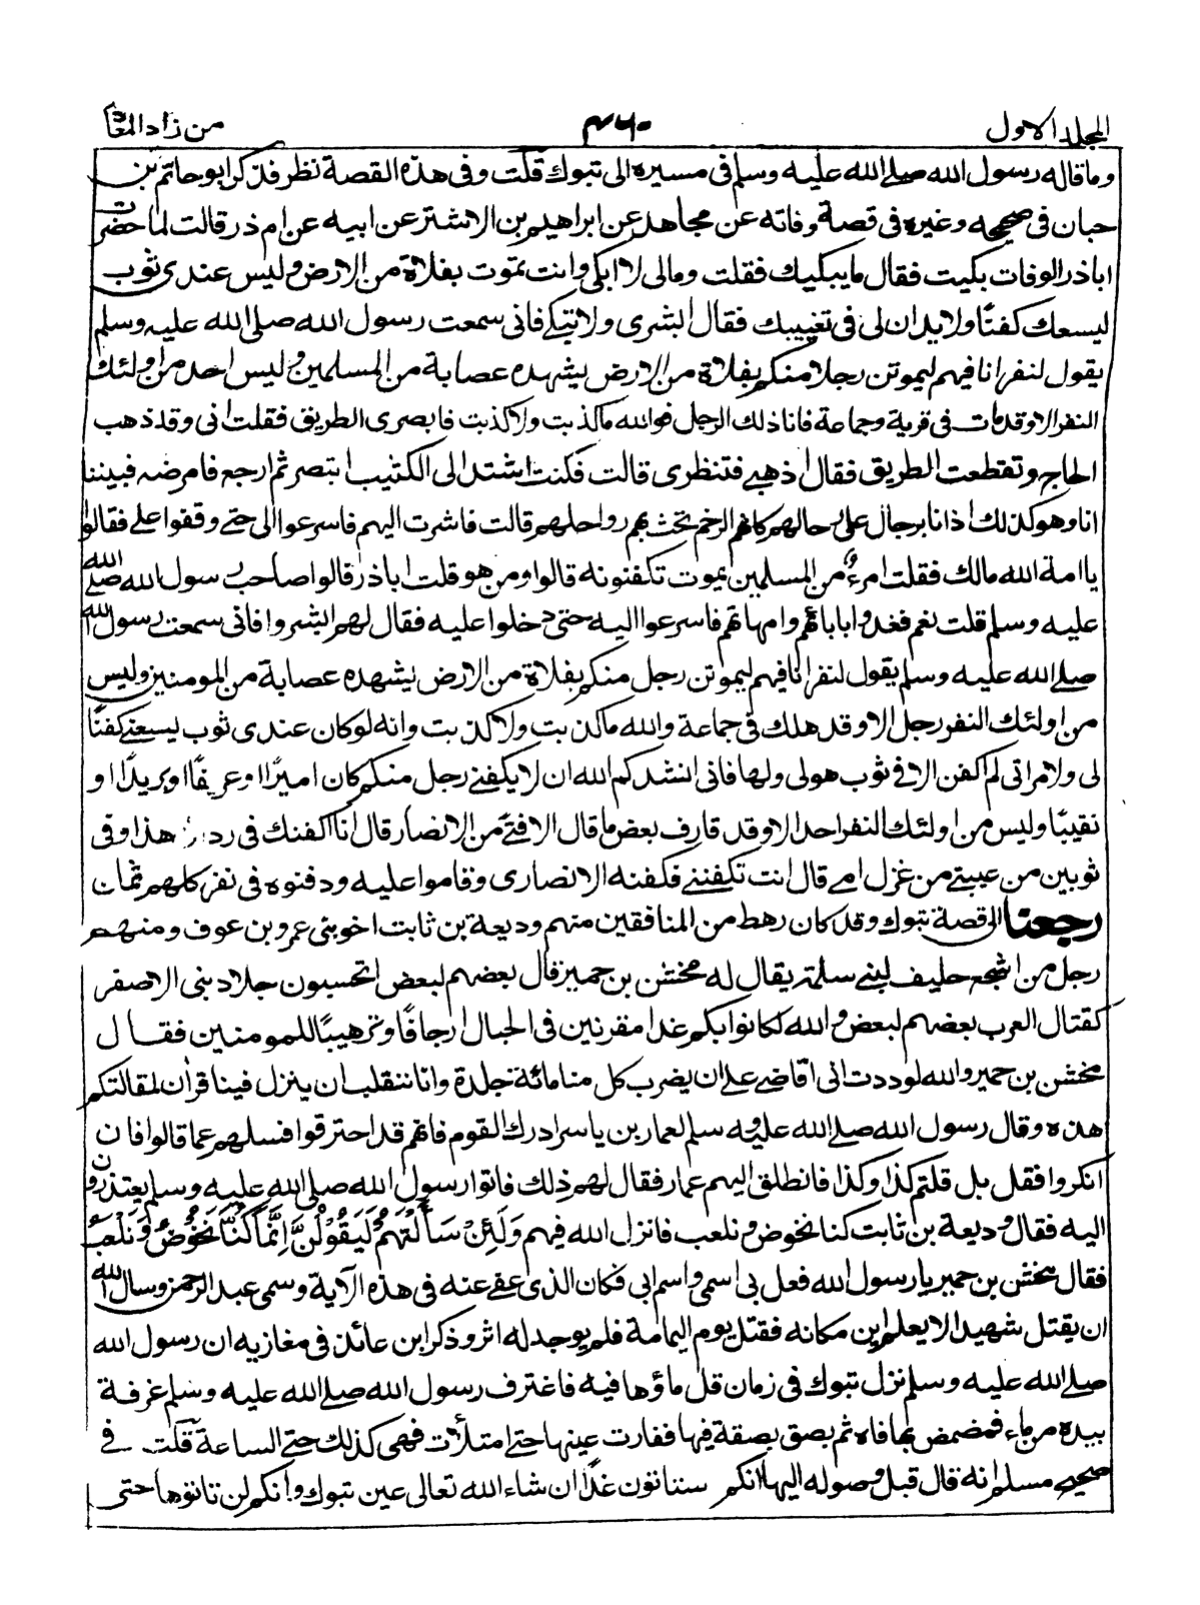 المجلد الاول
٤٦٠
من زاد المعاد
وما قاله رسول الله صلے الله عليه وسلم فى مسيره الى تبوك قلت وفى هذه القصة نظر فقد ذكر ابو حاتم بن
حبان فى صحيحه وغيره فى قصة وفاته عن مجاهد عن ابراهيم بن الاشتر عن ابيه عن ام ذر قالت لما حضرت
اباذر الوفات بكيت فقال ما يبكيك فقلت ومالى لا ابكى وانت تموت بفلاة من الارض وليس عندى ثوب
ليسعك كفنًا ولا يدان لى فى تغييبك فقال ابشرى ولا تبكے فانى سمعت رسول الله صلى الله عليه وسلم
يقول لنفر انا فيهم ليموتن رجلا منكم بفلاة من الارض يشهده عصابة من المسلمين وليس احد من اولئك
النفر الا وقد مات فى قرية وجماعة فانا ذلك الرجل فوالله ما كذبت ولا كذبت فابصرى الطريق فقلت انى وقد ذهب
الحاج وتقطعت الطريق فقال اذهبے فتنظرى قالت فكنت اشتد الى الكثيب ابتصر ثم ارجع فامرضه فبيننا
انا وهو كذلك اذا نا برجال على رحالهم كانهم الرخم تخث بهم رواحلهم قالت فاشرت اليهم فاسرعوا الى حتے وقفوا علے فقالوا
يا امة الله مالك فقلت امرءٌ من المسلمين يموت تكفنونه قالوا ومن هو قلت اباذر قالوا صاحب رسول الله صلے الله
عليه وسلم قلت نعم ففدوا باباءهم وامهاتهم فاسرعوا اليه حتى دخلوا عليه فقال لهم ابشروا فانى سمعت رسول الله
صلے الله عليه وسلم يقول لنفر انا فيهم ليموتن رجل منكم بفلاة من الارض يشهده عصابة من المومنين وليس
من اولئك النفر رجل الا وقد هلك فى جماعة والله ما كذبت ولا كذبت وانه لو كان عندى ثوب يسعنے كفنًا
لى ولامراتى لم اكفن الا فى ثوب هو لى ولها فانى انشدكم الله ان لا يكفنے رجل منكم كان اميرًا او عريفًا او بريدًا او
نقيبًا وليس من اولئك النفر احد الا وقد قارف بعض ما قال الا فتے من الانصار قال انا اكفنك فى هذا وفى
ثوبين من عيبتے من غزل امے قال انت تكفننے فكفنه الانصارى وقاموا عليه ودفنوه فى نفر كلهم ثمان
رجعنا الى قصة تبوك وقد كان رهط من المنافقين منهم وديعة بن ثابت اخو بنى عمرو بن عوف ومنهم
رجل من اشجع حليف لبنے سلمة يقال له مخشن بن حمير قال بعضهم لبعض اتحسبون جلاد بنى الاصفر
كقتال العرب بعضهم لبعض والله لكانوا بكم غدا مقرنين فى الحبال ارجافًا وترهيبًا للمومنين فقال
مخشن بن حمير والله لوددت انى اقاضے علے ان يضرب كل منا مائة جلدة وانا ننقلب ان ينزل فينا قرأن لمقالتكم
هذه وقال رسول الله صلے الله عليه وسلم لعمار بن ياسر ادرك القوم فانهم قد احترقوا فسلهم عما قالوا فان
انكروا فقل بل قلتم كذا وكذا فانطلق اليهم عمار فقال لهم ذلك فاتوا رسول الله صلى الله عليه وسلم يعتذرون
اليه فقال وديعة بن ثابت كنا نخوض ونلعب فانزل الله فيهم وَلَئِنْ سَأَلْتَهُمْ لَيَقُوْلُنَّ اِنَّمَا كُنَّا نَخُوْضُ وَنَلْعَبُ
فقال مخشن بن حمير يا رسول الله فعل بى اسمى واسم ابى فكان الذى عفے عنه فى هذه الآية وسمى عبد الرحمن وسال الله
ان يقتل شهيدا لا يعلم اين مكانه فقتل يوم اليمامة فلم يوجد له اثر وذكر ابن عائذ فى مغازيه ان رسول الله
صلے الله عليه وسلم نزل تبوك فى زمان قل ماؤها فيه فاغترف رسول الله صلے الله عليه وسلم غرفة
بيده من ماء فمضمض بها فاه ثم بصق بصقة فيها ففارت عينها حتے امتلأت فهى كذلك حتے الساعة قلت فے
صحيح مسلم انه قال قبل وصوله اليها انكم ستاتون غدًا ان شاء الله تعالى عين تبوك وانكم لن تاتوها حتى